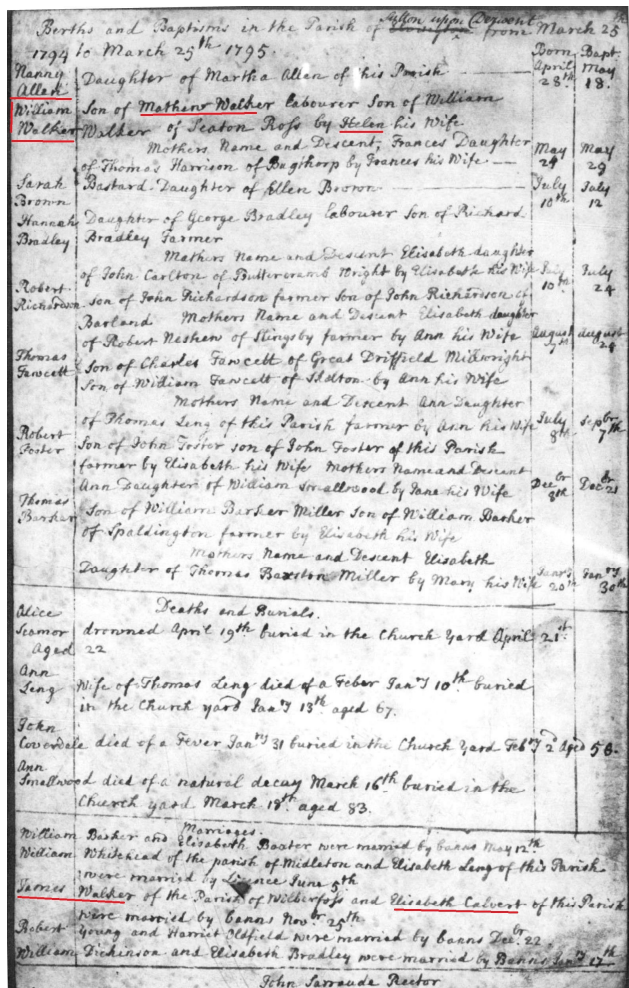 Births and Baptisms in the Parish of Sutton upon Derwent from March 25th
1794 to March 25th 1795.
Born Bapt.
Nanny Allen Daughter of Martha Allen of this Parish April 28th May 18.
William Son of Mathew Walker labourer Son of William
Walker Walker of Seaton Ross by Helen his Wife
Mothers Name and Descent, Frances Daughter May May
of Thomas Harrison of Bugthorp by Frances his Wife 24 29
Sarah Brown Bastard Daughter of Ellen Brown July 10th July 12
Hannah Daughter of George Bradley labourer Son of Richard
Bradley Bradley Farmer
Mothers Name and Descent Elisabeth daughter
of John Carlton of Buttercramb Wright by Elisabeth his Wife July 10th July 24
Robert
Richardson Son of John Richardson farmer Son of John Richardson of
Barland Mothers Name and Descent Elisabeth daughter
of Robert of Slingsby farmer by Ann his Wife August August
Thomas Son of Charles Fawcett of Great Driffield
Fawcett Son of William Fawcett of by Ann his Wife
Mothers Name and Descent Ann Daughter
of Thomas Leng of this Parish farmer by Ann his Wife July 8th Sepbr 7th
Robert Foster Son of John Foster son of John Foster of this Parish
farmer by Elisabeth his Wife Mothers Name and Descent
Ann Daughter of William Smallwood by Jane his Wife Decbr Decbr 21
Thomas Son of William Barker Miller Son of William Barker
Barker of Spaldington farmer by Elisabeth his Wife
Mothers Name and Descent Elisabeth
Daughter of Thomas Baxston Miller by Mary his Wife Janry 20th Janry 30th
Deaths and Burials.
Alice
Seamor drowned April 19th buried in the Church Yard April 21st
Aged 22
Ann
Leng Wife of Thomas Leng died of a Feber Janry 10th buried
in the Church yard Janry 13th aged 67.
John
Coverdale died of a Fever Janry 31 buried in the Church Yard Febry 2d Aged 56.
Ann
Smallwood died of a natural decay March 16th buried in the
Church yard March 18th aged 83.
Marriages.
William Barker and Elisabeth Baxter were married by banns May 12th
William Whitehead of the parish of Midleton and Elisabeth Leng of this Parish
were married by Licence June 5th
James Walker of the Parish of Wilberfoss and Elisabeth Calvert of this Parish
were married by banns Novbr 25th
Robert Young and Harriet Oldfield were married by banns Decbr 22.
William Dickinson and Elisabeth Bradley were married by Banns Janry 12th
John Sarraude Rector